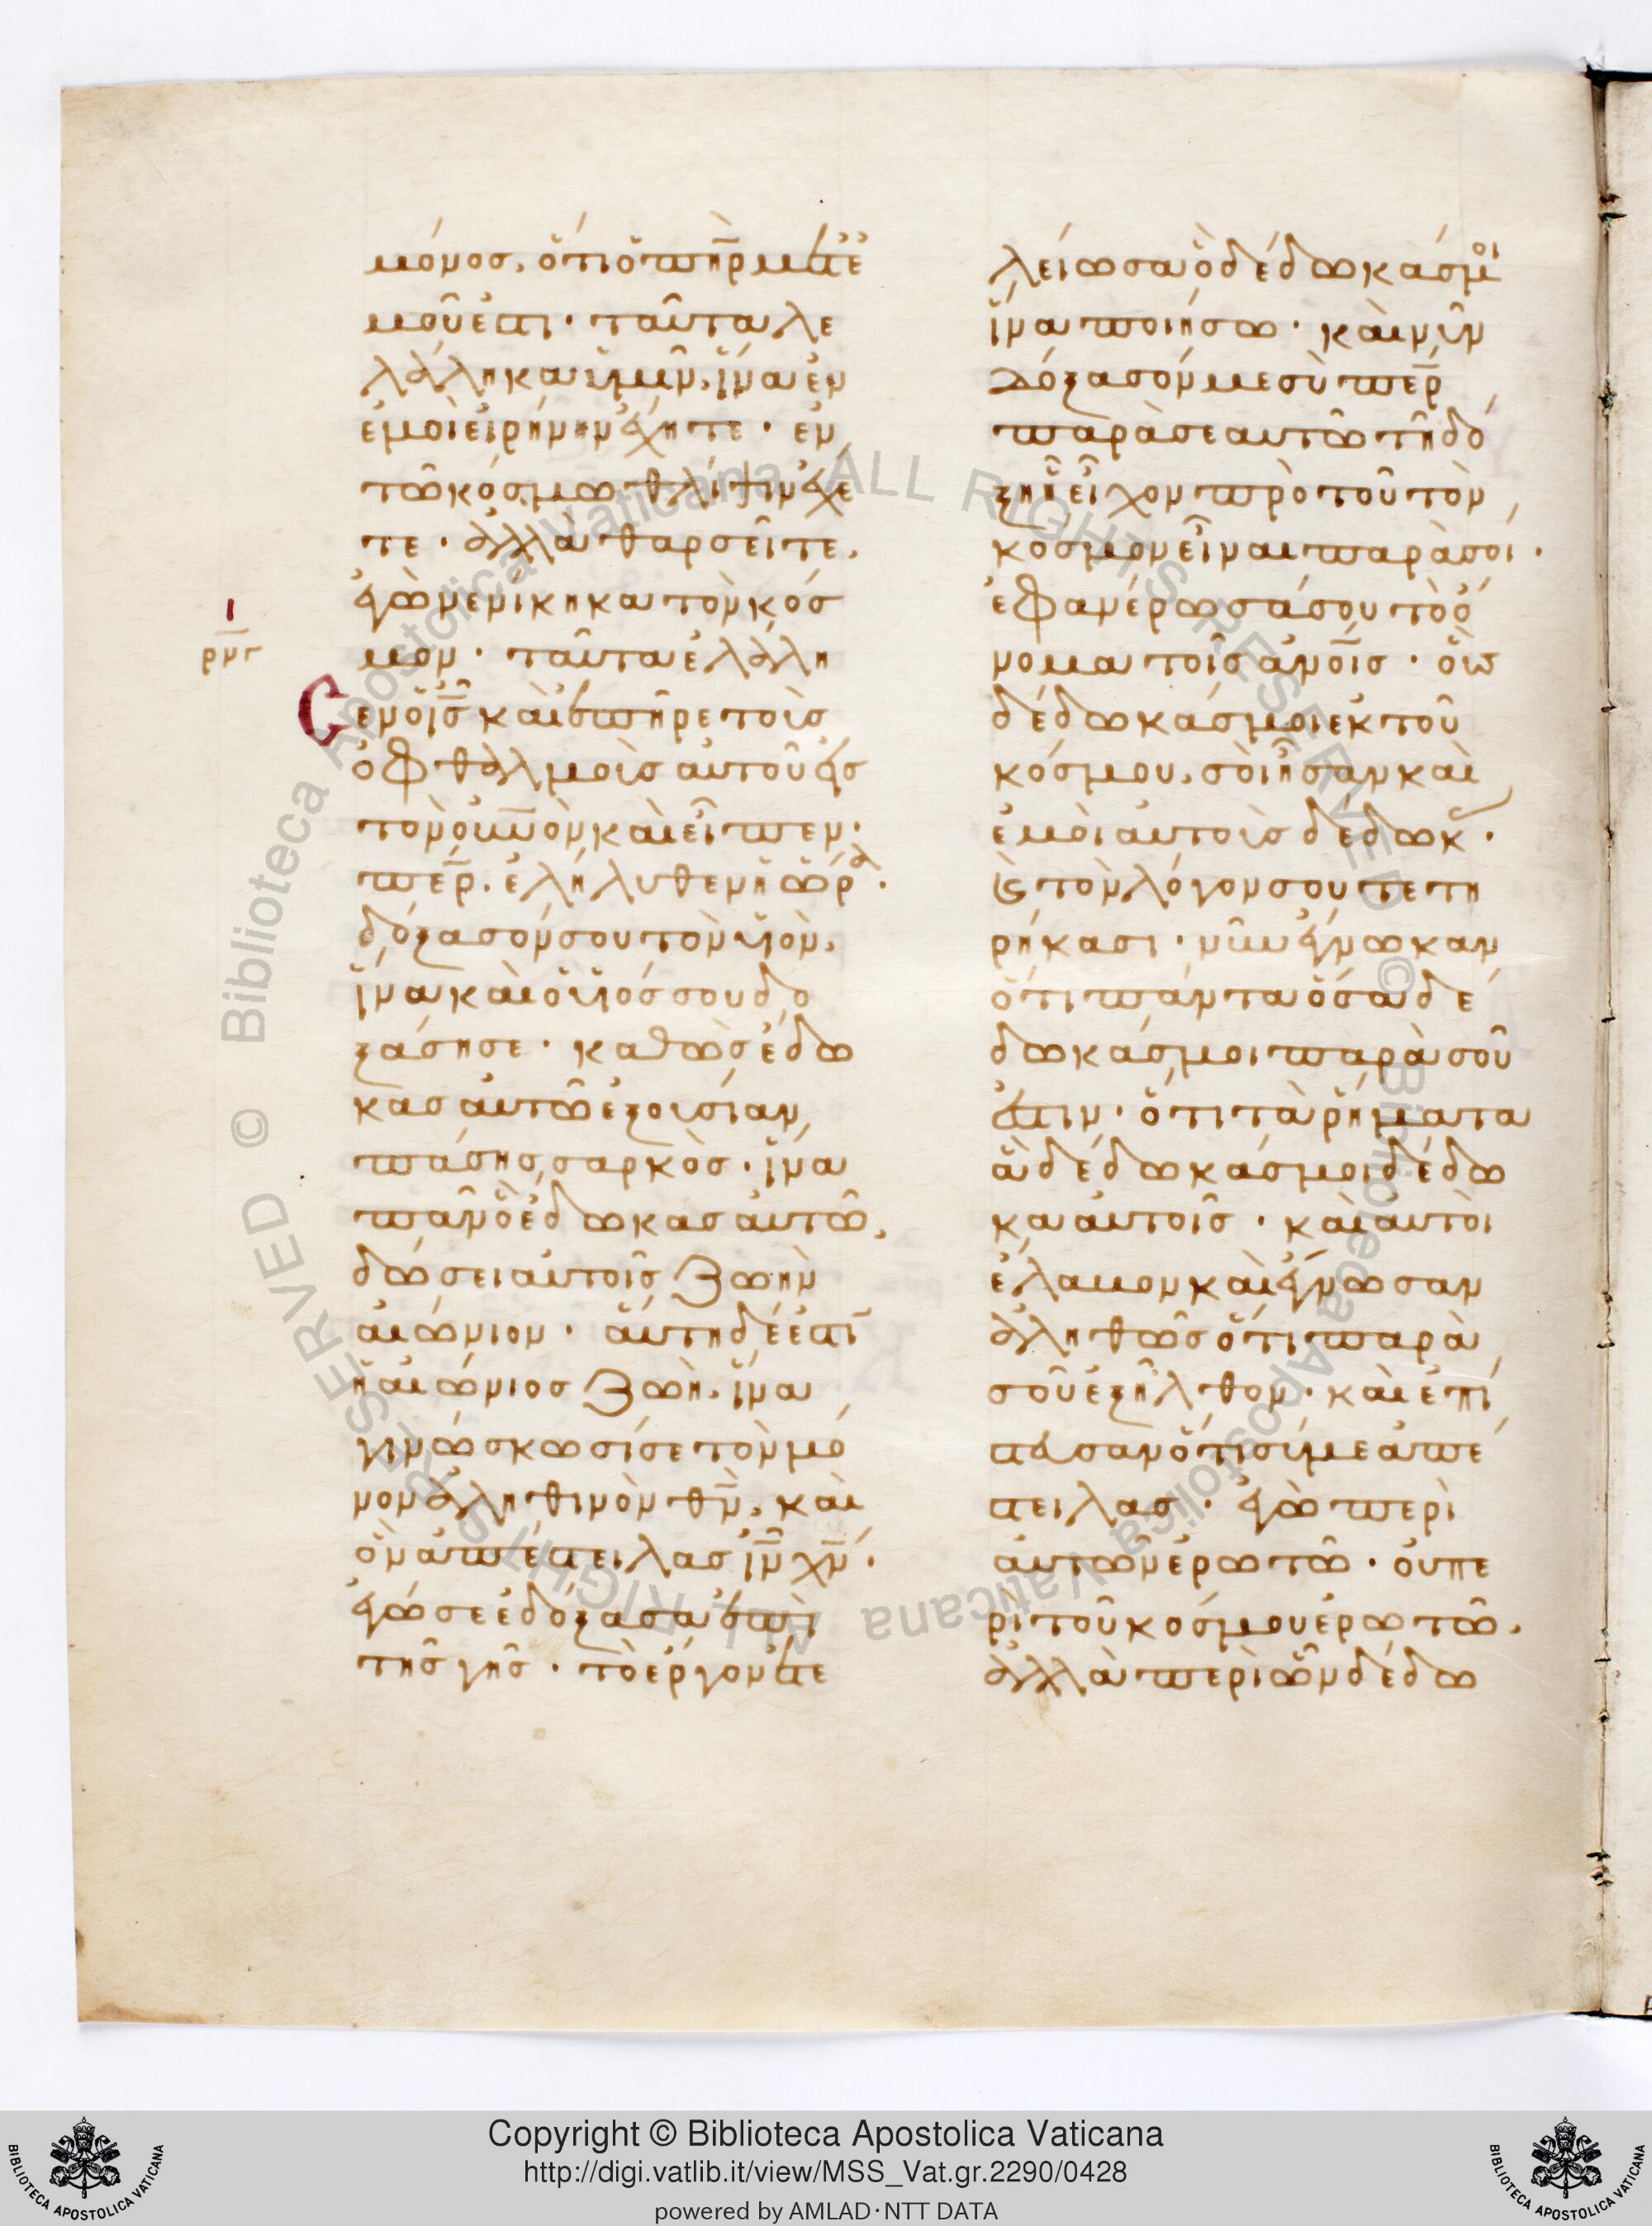 μόνος, ὅτι ὁ πηρ μετ ἐ
μοῦ ἐστι· ταῦτα λε
λάληκα ὑμῖν, ἵνα ἐν
ἐμοὶ εἰρήνην ἔχητε· ἐν
τῶ κόσμω θλίψιν ἔχε
τε· ἀλλὰ θαρσεῖτε,
ἐγὼ νενίκηκα τὸν κόσ
μον· ταῦτα ἐλάλη
Ι
ρνγ
Cεν ὁ ις καὶ ἐπῆρε τοὺς
ὀφθαλμοὺς αὐτοῦ εἰς
τὸν οὐνὸν καὶ εἶπεν·
περ. ἐλήλυθεν ἡ ὥρα·
δόξασόν σου τὸν υἱόν,
ἵνα καὶ ὁ υἱός σου δο
ξάση σε· καθὼς ἔδω
κας αὐτῶ ἐξουσίαν
πάσης σαρκὸς· ἵνα
πᾶν ὃ ἔδωκας αὐτῶ,
δώσει αὐτοῖς ζωὴν
αἰώνιον· αὕτη δέ ἐστῑ
ἡ αἰώνιος ζωὴ, ἵνα
γινώσκωσί σε τὸν μό
νον ἀληθινὸν θν, καὶ
ὃν ἀπέστειλας ιν χν·
ἐγώ σε ἐδόξασα ἐπὶ
τῆς γῆς· τὸ ἔργον ἐτε
λείωσα ὃ δέδωκάς μοι
ἵνα ποιήσω· καὶ νῦν
δόξασόν με σὺ περ
παρὰ σεαυτῶ τῆ δό
ξη ἧ εἶχον πρὸ τοῦ τὸν
κόσμον εἶναι παρὰ σοί·
ἐφανέρωσά σου τὸ ὄ
νομα τοῖς ἀνοις· οὓς
δέδωκάς μοι ἐκ τοῦ
κόσμου, σοὶ ἦσαν καὶ
ἐμοὶ αὐτοὺς δέδωκ·
ϗ τὸν λόγον σου τετη
ρήκασι· νῦν ἔγνωκαν
ὅτι πάντα ὅσα δέ
δωκάς μοι παρὰ σοῦ
ἐστιν· ὅτι τὰ ῥήματα
ἃ δέδωκάς μοι δέδω
κα αὐτοῖς· καὶ αὐτοὶ
ἔλαβον καὶ ἔγνωσαν
ἀληθῶς ὅτι παρὰ
σοῦ ἐξῆλθον· καὶ ἐπί
στευσαν ὅτι σύ με ἀπέ
στειλας· ἐγὼ περὶ
αὐτῶν ἐρωτῶ· οὐ πε
ρὶ τοῦ κόσμου ἐρωτῶ,
ἀλλὰ περὶ ὧν δέδω
Copyright © Biblioteca Apostolica Vaticana
http://digi.vatlib.it/view/MSS_Vat.gr.2290/0428
powered by AMLAD·NTT DATA
BIBLIOTECA APOSTOLICA VATICANA
BIBLIOTECA APOSTOLICA VATICANA
Biblioteca Apostolica Vaticana ALL RIGHTS RESERVED ©
Biblioteca Apostolica Vaticana ALL RIGHTS RESERVED ©